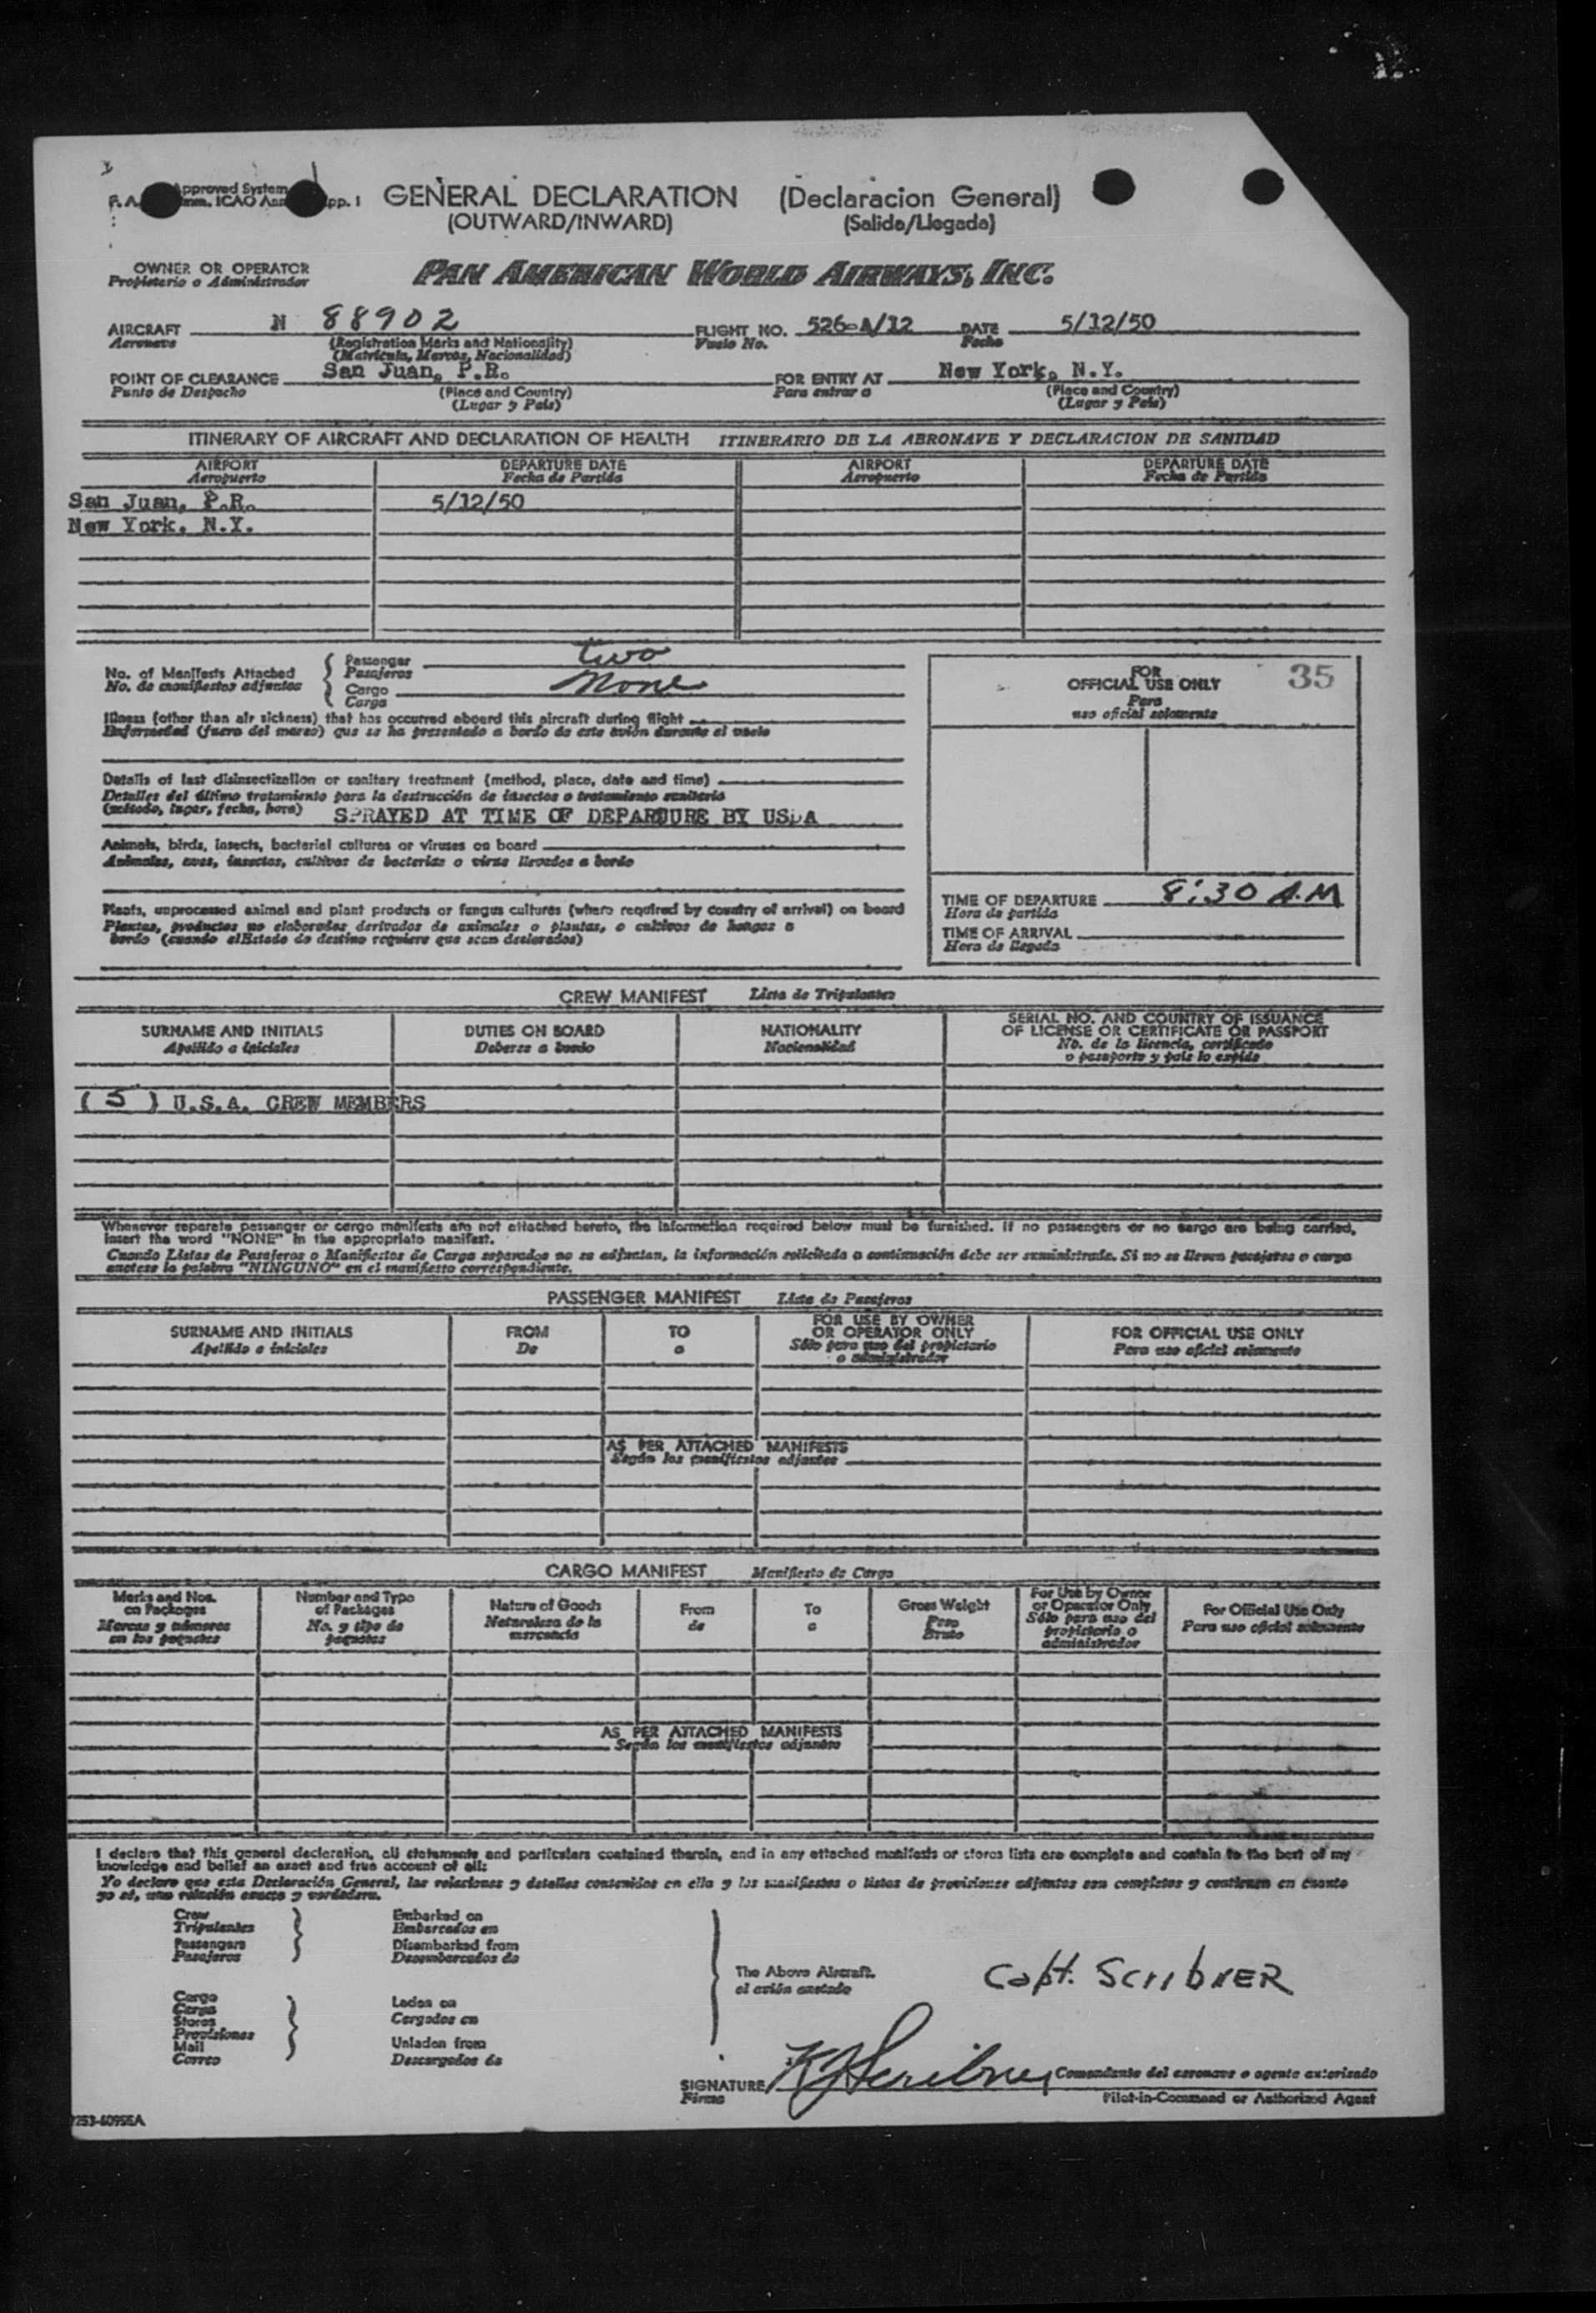 F.A. Approved System
Imm. ICAO Ann pp. 1
GENERAL DECLARATION (Declaracion General)
(OUTWARD/INWARD) (Salida/Llegada)
OWNER OR OPERATOR
Propietario o Administrador
PAN AMERICAN WORLD AIRWAYS, INC.
AIRCRAFT N 88902 FLIGHT NO. 526-A/12 DATE 5/12/50
Aeronave (Registration Marks and Nationality) Vuelo No. Fecha
(Matricula, Marcas, Nacionalidad)
POINT OF CLEARANCE San Juan, P.R. FOR ENTRY AT New York, N.Y.
Punto de Despacho (Place and Country) Para entrar a (Place and Country)
(Lugar y Pais) (Lugar y Pais)
ITINERARY OF AIRCRAFT AND DECLARATION OF HEALTH ITINERARIO DE LA AERONAVE Y DECLARACION DE SANIDAD
AIRPORT DEPARTURE DATE AIRPORT DEPARTURE DATE
Aeropuerto Fecha de Partida Aeropuerto Fecha de Partida
San Juan, P.R. 5/12/50
New York, N.Y.
No. of Manifests Attached
No. de manifiestos adjuntos
Passenger two
Pasajeros
Cargo None
Carga
Illness (other than air sickness) that has occurred aboard this aircraft during flight
Enfermedad (fuera del mareo) que se ha presentado a bordo de este avión durante el vuelo
Details of last disinsectization or sanitary treatment (method, place, date and time)
Detalles del último tratamiento para la destrucción de insectos o tratamiento sanitario
(método, lugar, fecha, hora) SPRAYED AT TIME OF DEPARDURE BY USDA
Animals, birds, insects, bacterial cultures or viruses on board
Animales, aves, insectos, cultivos de bacterias o virus llevados a bordo
Plants, unprocessed animal and plant products or fungus cultures (where required by country of arrival) on board
Plantas, productos no elaborados derivados de animales o plantas, o cultivos de hongos a
bordo (cuando el Estado de destino requiere que sean declarados)
FOR 35
OFFICIAL USE ONLY
Para
uso oficial solamente
TIME OF DEPARTURE 8:30 A.M
Hora de partida
TIME OF ARRIVAL
Hora de llegada
CREW MANIFEST Lista de Tripulantes
SURNAME AND INITIALS DUTIES ON BOARD NATIONALITY SERIAL NO. AND COUNTRY OF ISSUANCE
OF LICENSE OR CERTIFICATE OR PASSPORT
Apellido e iniciales Deberes a bordo Nacionalidad No. de la licencia, certificado
o pasaporte y pais lo expide
( 5 ) U.S.A. CREW MEMBERS
Whenever separate passenger or cargo manifests are not attached hereto, the information required below must be furnished. If no passengers or no cargo are being carried,
insert the word "NONE" in the appropriate manifest.
Cuando Listas de Pasajeros o Manifiestos de Carga separados no se adjuntan, la información solicitada a continuación debe ser suministrada. Si no se llevan pasajeros o carga
anotese la palabra "NINGUNO" en el manifiesto correspondiente.
PASSENGER MANIFEST Lista de Pasajeros
SURNAME AND INITIALS FROM TO FOR USE BY OWNER
OR OPERATOR ONLY FOR OFFICIAL USE ONLY
Apellido e iniciales De a Sólo para uso del propietario
o administrador Para uso oficial solamente
AS PER ATTACHED MANIFESTS
Según los manifiestos adjuntos
CARGO MANIFEST Manifiesto de Carga
Marks and Nos.
on Packages
Marcas y números
en los paquetes
Number and Type
of Packages
No. y tipo de
paquetes
Nature of Goods
Naturaleza de la
mercancia
From
de
To
a
Gross Weight
Peso
Bruto
For Use by Owner
or Operator Only
Sólo para uso del
propietario o
administrador
For Official Use Only
Para uso oficial solamente
AS PER ATTACHED MANIFESTS
Según los manifiestos adjuntos
I declare that this general declaration, all statements and particulars contained therein, and in any attached manifests or stores lists are complete and contain to the best of my
knowledge and belief an exact and true account of all:
Yo declaro que esta Declaración General, las relaciones y detalles contenidos en ella y los manifiestos o listas de provisiones adjuntos son completos y contienen en cuanto
yo sé, una relación exacta y verdadera.
Crew
Tripulantes
Passengers
Pasajeros
Embarked on
Embarcados en
Disembarked from
Desembarcados de
Cargo
Carga
Stores
Provisiones
Mail
Correo
Laden on
Cargados en
Unladen from
Descargados de
The Above Aircraft.
el avión anotado
Capt. Scribner
SIGNATURE K J Scribner Comandante del aeronave o agente autorizado
Firma Pilot-in-Command or Authorized Agent
7253-6095EA